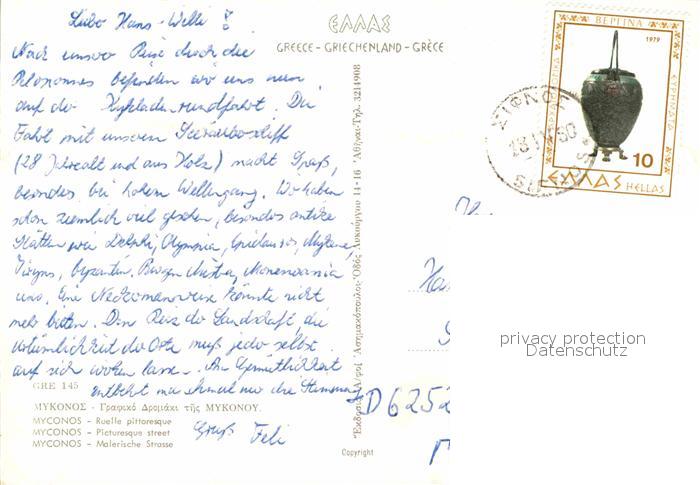 Liebe Hans-Willi!
Nach unserer Reise durch die
Peloponnes befinden wir uns nun
auf der Kykladenrundfahrt. Die
Fahrt mit unserem Seeräuberschiff
(28 Jahre alt und aus Holz) macht Spaß,
besonders bei hohem Wellengang. Wir haben
schon ziemlich viel gesehen, besonders antike
Stätten wie Delphi, Olympia, Epidauros, Mykene,
Tiryns, byzantin. Burgen Mistra, Monemvasia
usw. Eine könnte nicht
mehr bieten. Den Reiz der Landschaft, die
Urtümlichkeit der Orte muß jeder selbst
auf sich wirken lassen. An Gemütlichkeit
entbehrt manchmal nur die Stimmung
Gruß Feli
ΕΛΛΑΣ
GREECE - GRIECHENLAND - GRÈCE
GRE 145
ΜΥΚΟΝΟΣ - Γραφικό Δρομάκι τῆς ΜΥΚΟΝΟΥ.
MYCONOS – Ruelle pittoresque
MYCONOS – Picturesque street
MYCONOS – Malerische Strasse
Ἐκδόσεις Ἀ/φοί Ἀσημακόπουλοι Ὁδὸς Λυκούργου 14-16 Ἀθῆναι-Τηλ. 3214908
Copyright
ΒΕΡΓΙΝΑ
1979
ΕΥΡΗΜΑΤΑ
10
ΕΛΛΑΣ HELLAS
ΣΙΦΝΟΣ
D 6252
privacy protection
Datenschutz